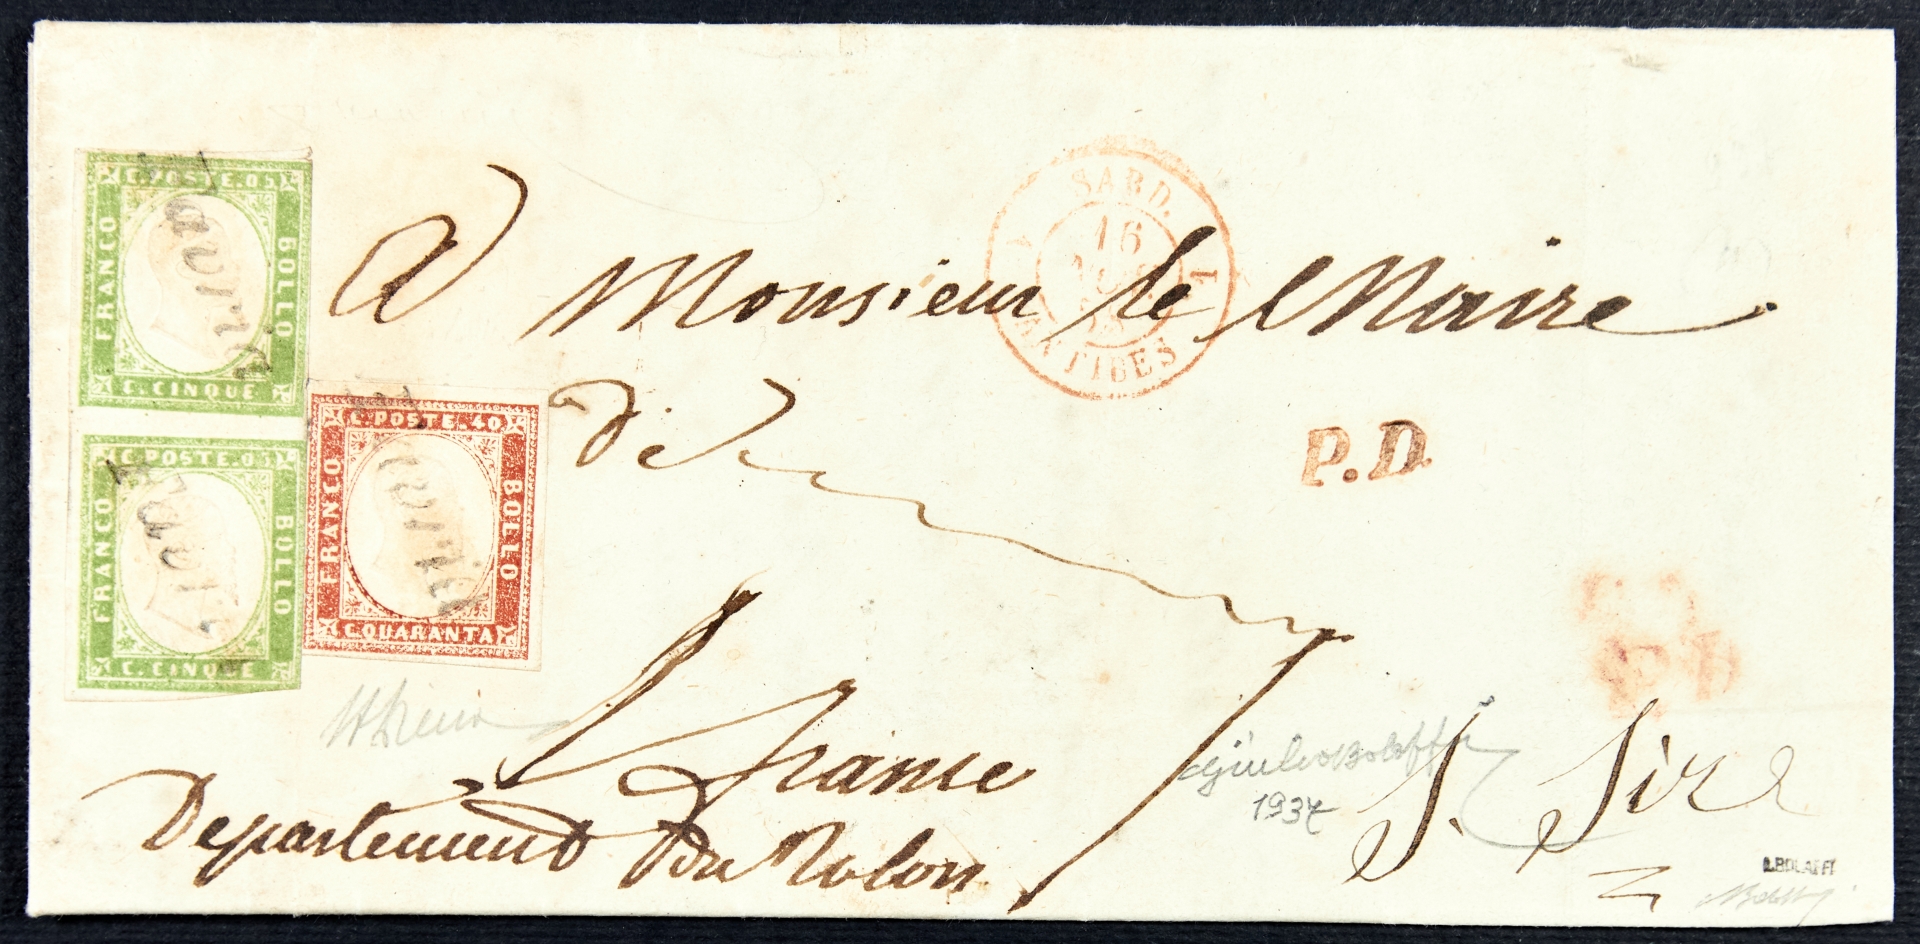 C. POSTE. 05
FRANCO
BOLLO
C. CINQUE
C. POSTE. 05
FRANCO
BOLLO
C. CINQUE
C. POSTE. 40
FRANCO
BOLLO
C. QUARANTA
SARD.
16
1
1
ANTIBES
A Monsieur le Maire
de
P.D.
France
S. Sire
Departement Du Rolon
Giulio Bolaffi
1937
A.BOLAFFI